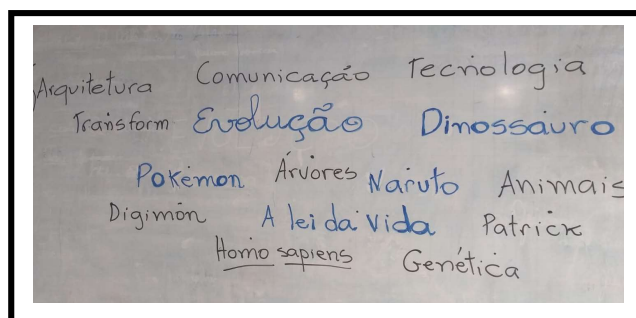 Arquitetura Comunicação Tecnologia
Transform Evolução Dinossauro
Pokémon Árvores Naruto Animais
Digimon A lei da vida Patrick
Homo sapiens Genética